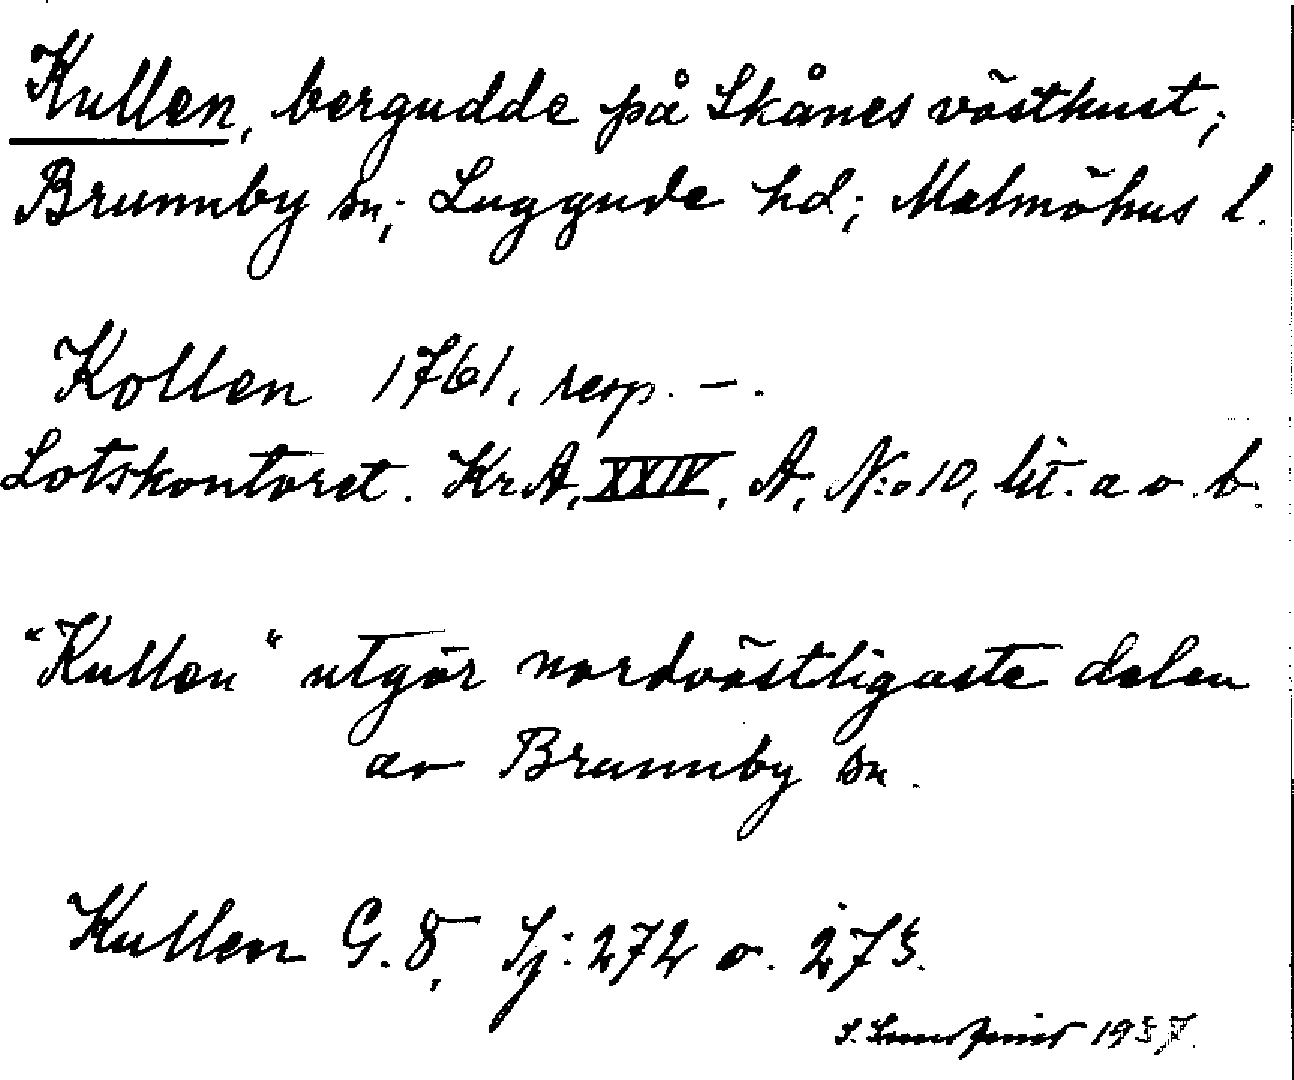 Kullen, bergudde på Skånes västkust;
Brunnby sn; Luggude hd; Malmöhus l.
Kollen 1761, resp. –.
Lotskontoret. KrA, XXIV, A, N:o 10, litt. a o. b.
"Kullen" utgör nordvästligaste delen
av Brunnby sn.
Kullen G. 8, Sj: 272 o. 273.
S. 1937.